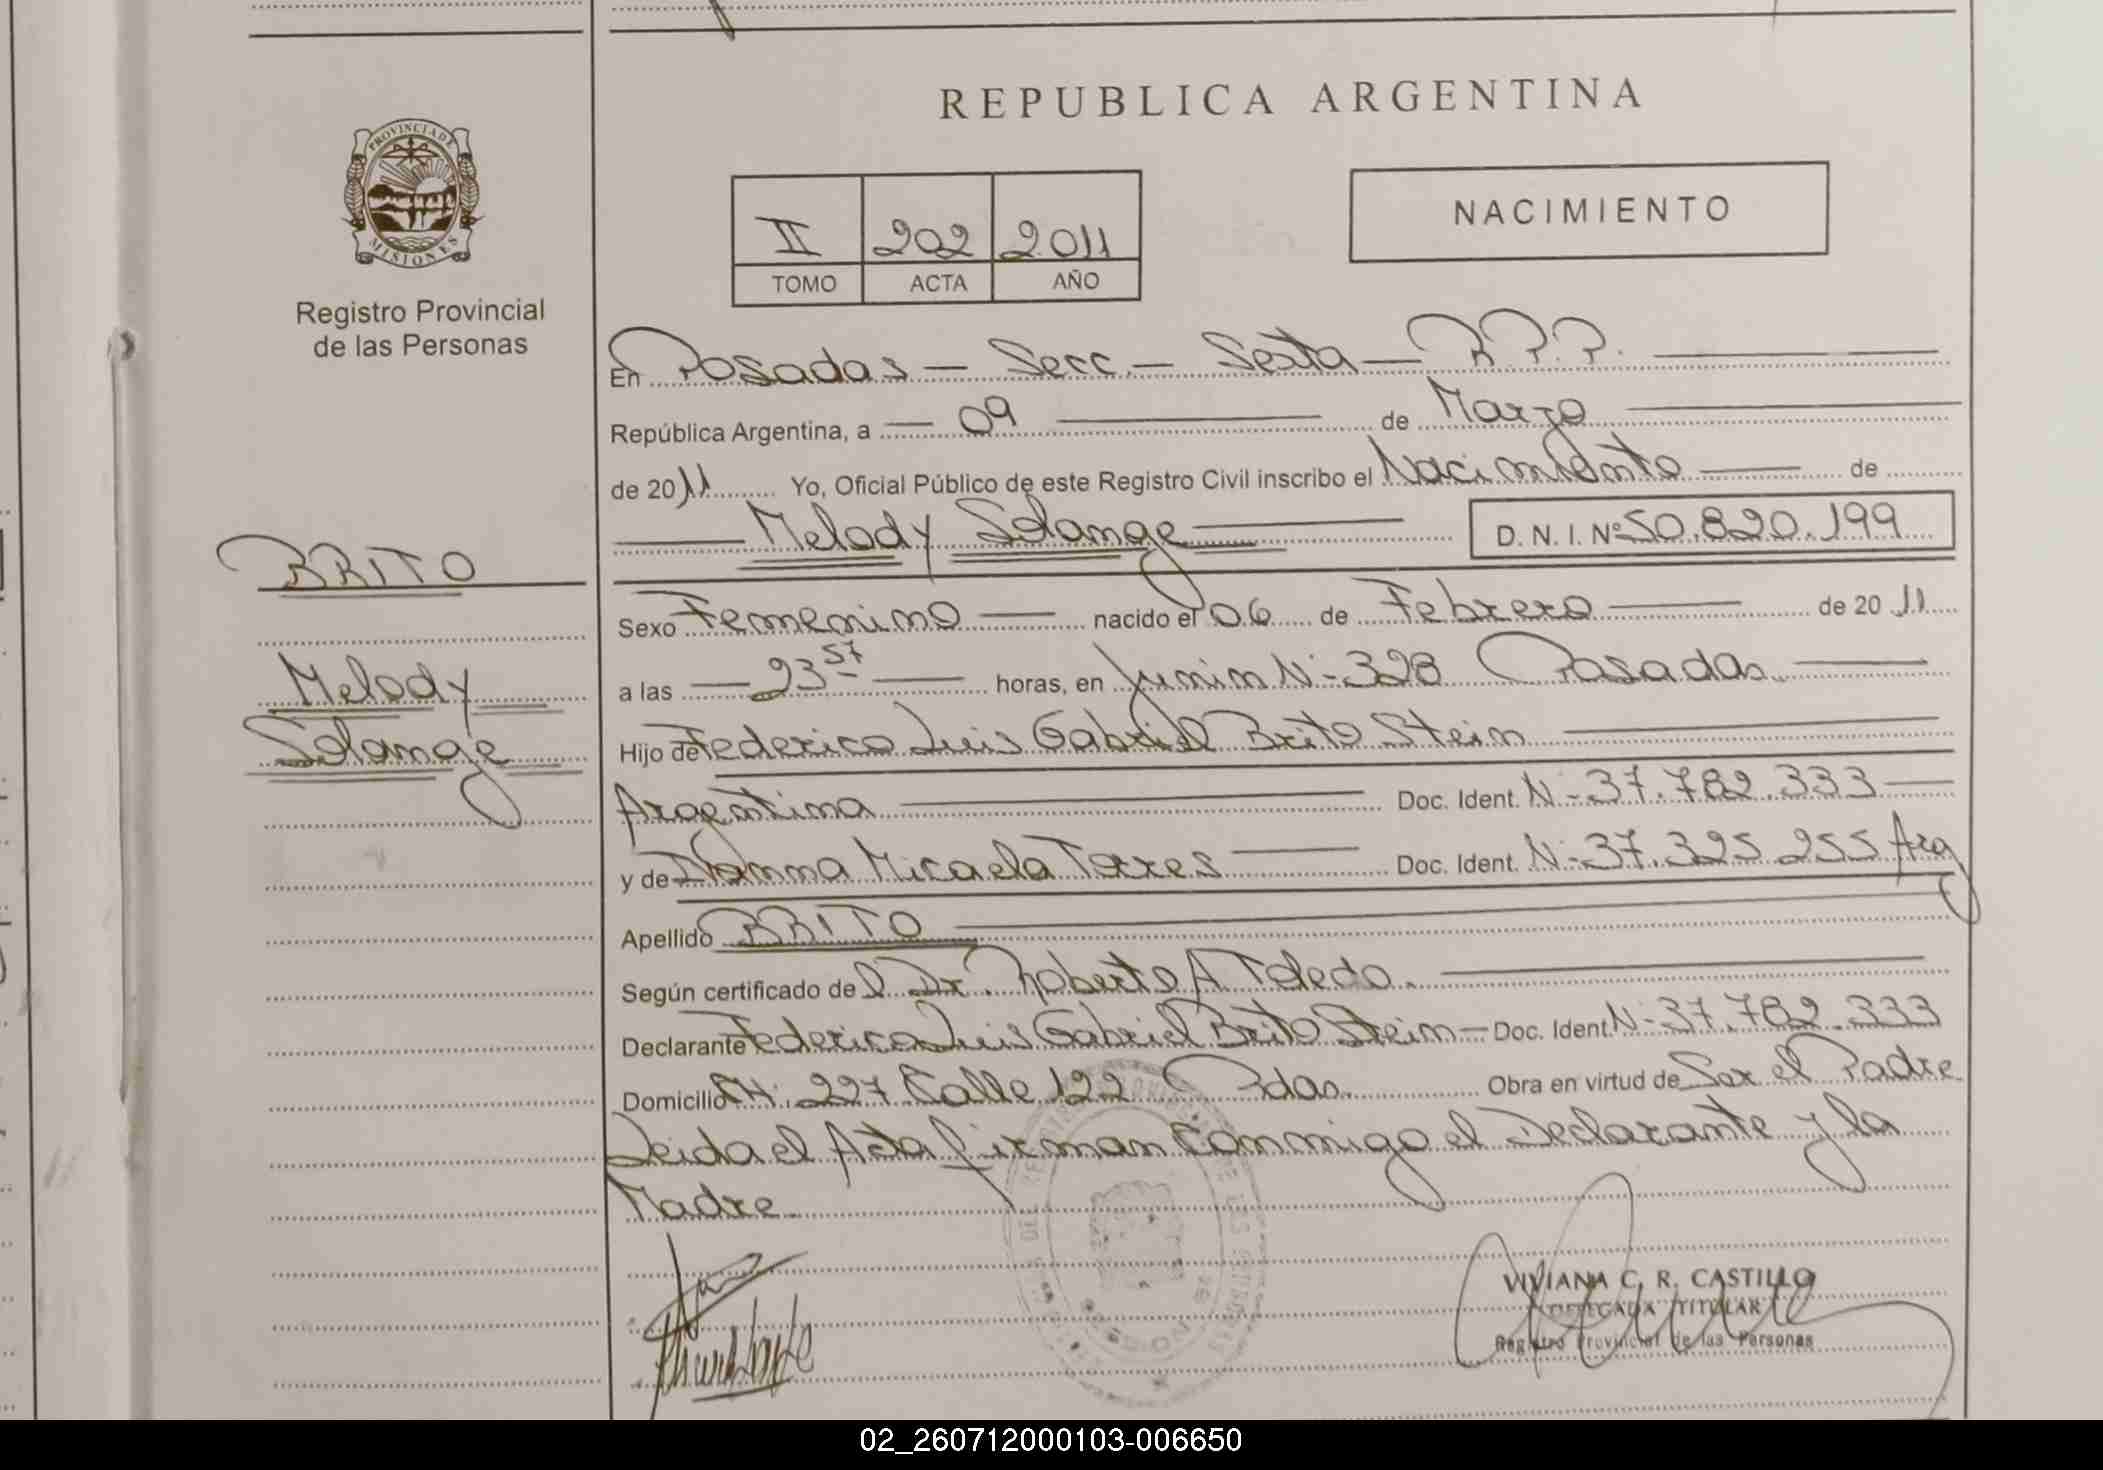 REPUBLICA ARGENTINA
PROVINCIA DE
MISIONES
Registro Provincial
de las Personas
II 202 2011
TOMO ACTA AÑO
NACIMIENTO
En Posadas — Secc. — Sexta — R.P.P.
República Argentina, a — 09 — de Marzo
de 2011 Yo, Oficial Público de este Registro Civil inscribo el Nacimiento — de
Melody Solange — D. N. I. Nº 50.820.199
BRITO
Melody
Solange
Sexo Femenino — nacido el 06 de Febrero — de 2011
a las — 23 57 — horas, en Junin N- 328 Posadas —
Hijo de Federico Luis Gabriel Brito Stein
Argentina — Doc. Ident. N- 37.782.333
y de Micaela Torres — Doc. Ident. N- 37.325.255 Arg
Apellido BRITO
Según certificado del Dr. Roberto A Toledo.
Declarante Federico Luis Gabriel Brito Stein — Doc. Ident. N- 37.782.333
Domicilio CH. 227 Calle 122 Pdas. Obra en virtud de Ser el Padre
Leida el Acta firman Conmigo el Declarante y la
Madre.
VIVIANA C. R. CASTILLO
DELEGADA TITULAR
Registro Provincial de las Personas
02_260712000103-006650